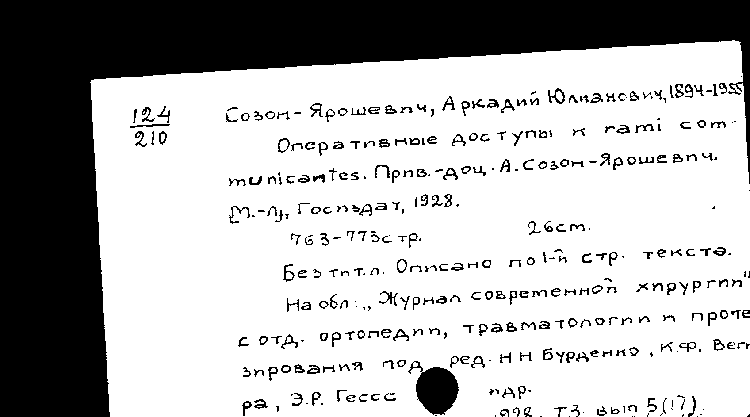 124
210
Созон-Ярошевич, Аркадий Юлианович, 1894-1955
Оперативные доступы к rami com-
municantes. Прив.-доц. А. Созон-Ярошевич.
[М.-Л], Госиздат, 1928.
763-773 стр. 26 cm.
Без тит. л. Описано по 1-й стр. текста.
На обл.: „Журнал современной хирургии"
с отд. ортопедии, травматологии и проте
зирования под ред. Н Н Бурденко, К.Ф. Вегн
ра, Э.Р. Гессе и др.
1928, Т.3. вып 5(17).